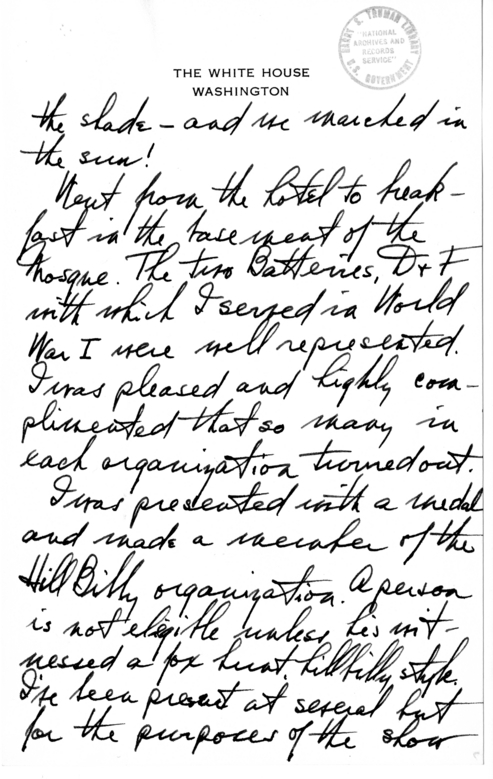 HARRY S. TRUMAN LIBRARY
"NATIONAL
ARCHIVES AND
RECORDS
SERVICE"
U.S. GOVERNMENT
THE WHITE HOUSE
WASHINGTON
the shade – and we marched in
the sun!
Went from the hotel to break-
fast in the basement of the
Mosque. The two Batteries, D + F
with which I served in World
War I were well represented.
I was pleased and highly com-
plimented that so many in
each organization turned out.
I was presented with a medal
and made a member of the
Hill Billy organization. A person
is not eligible unless he's wit-
nessed a fox hunt, hillbilly style.
I've been present at several but
for the purposes of the show